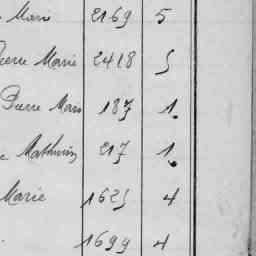 Marie 2169 5
Pierre Marie 2418 5
Pierre Marie 187 1
Mathurin 217 1
Marie 1625 4
1699 4